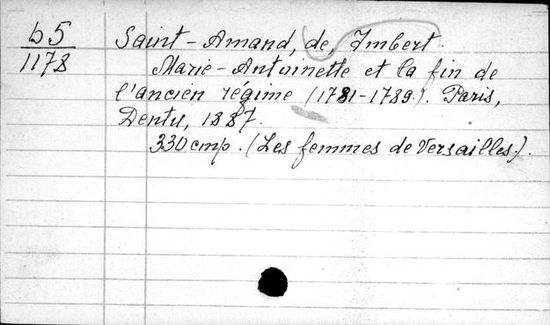 b5
1178
Saint-Amand, de, Imbert.
Marie-Antoinette et la fin de
l'ancien régime (1781-1789.). Paris,
Dentu, 1887.
330 cmp. (Les femmes de Versailles.).